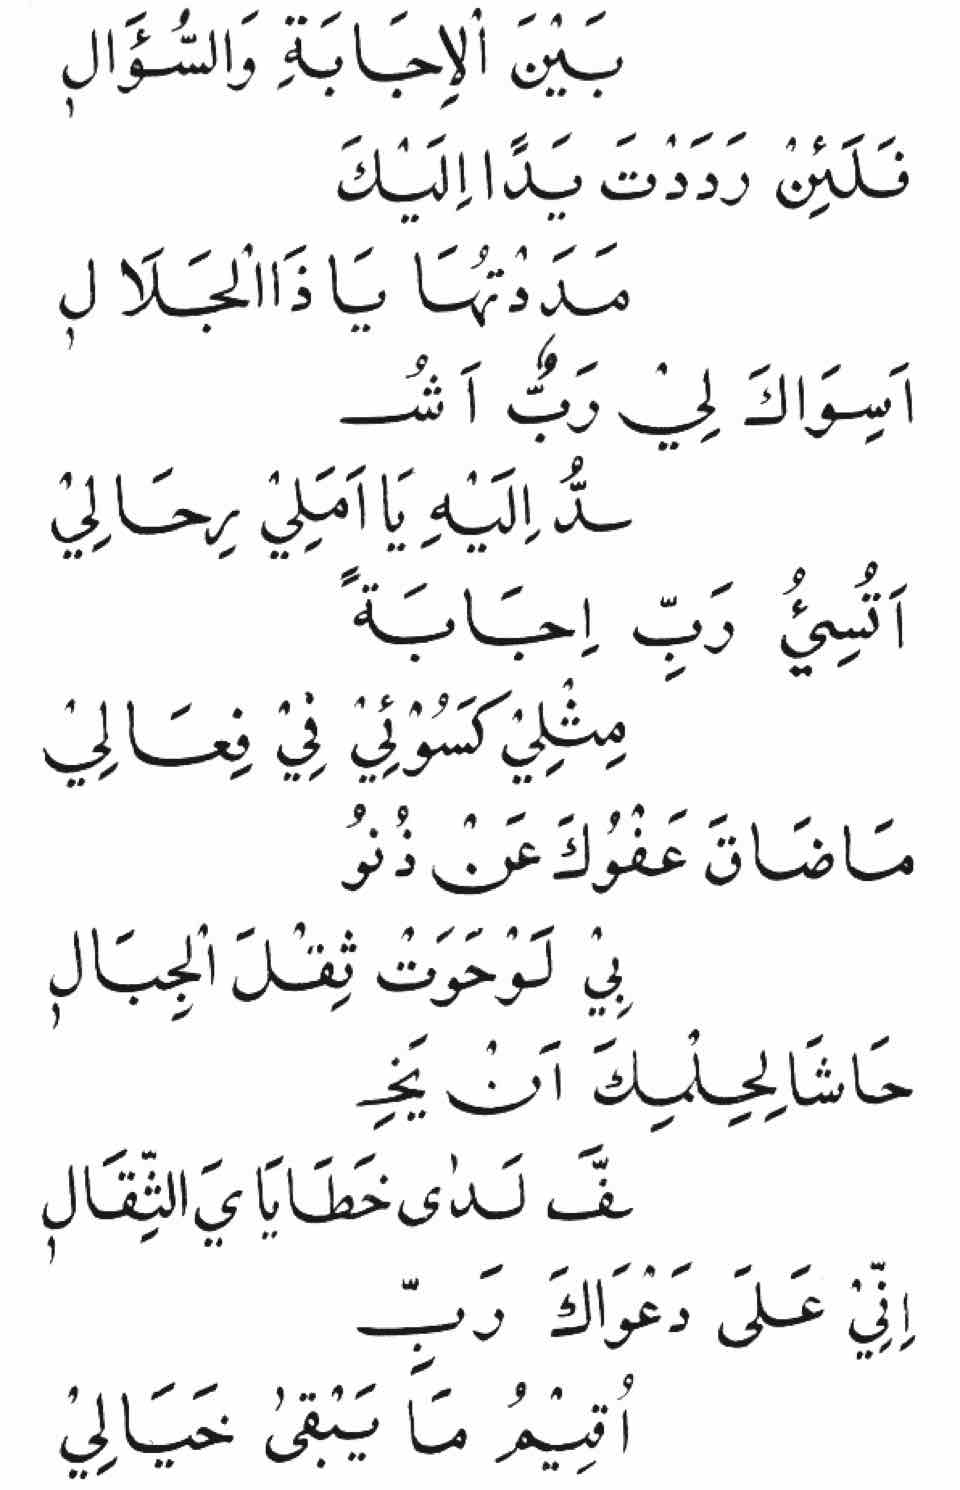 بَيْنَ الْاِجَابَةِ وَالسُّؤَالِ
فَلَئِنْ رَدَدْتَ يَدًا اِلَيْكَ
مَدَدْتُهَا يَا ذَاالْجَلَالِ
اَسِوَاكَ لِيْ رَبٌّ اَشُـ
ـدُّ اِلَيْهِ يَا اَمَلِيْ رِحَالِيْ
اَتُسِيْئُ رَبِّ اِجَابَةً
مِثْلِيْ كَسُوْئِيْ فِيْ فِعَالِيْ
مَاضَاقَ عَفْوُكَ عَنْ ذُنُوْ
بِيْ لَوْحَوَتْ ثِقْلَ الْجِبَالِ
حَاشَا لِحِلْمِكَ اَنْ يَخِـ
ـفَّ لَدٰى خَطَايَايَ الثِّقَالِ
اِنِّيْ عَلَى دَعْوَاكَ رَبِّـ
اُقِيْمُ مَا يَبْقٰى خَيَالِيْ